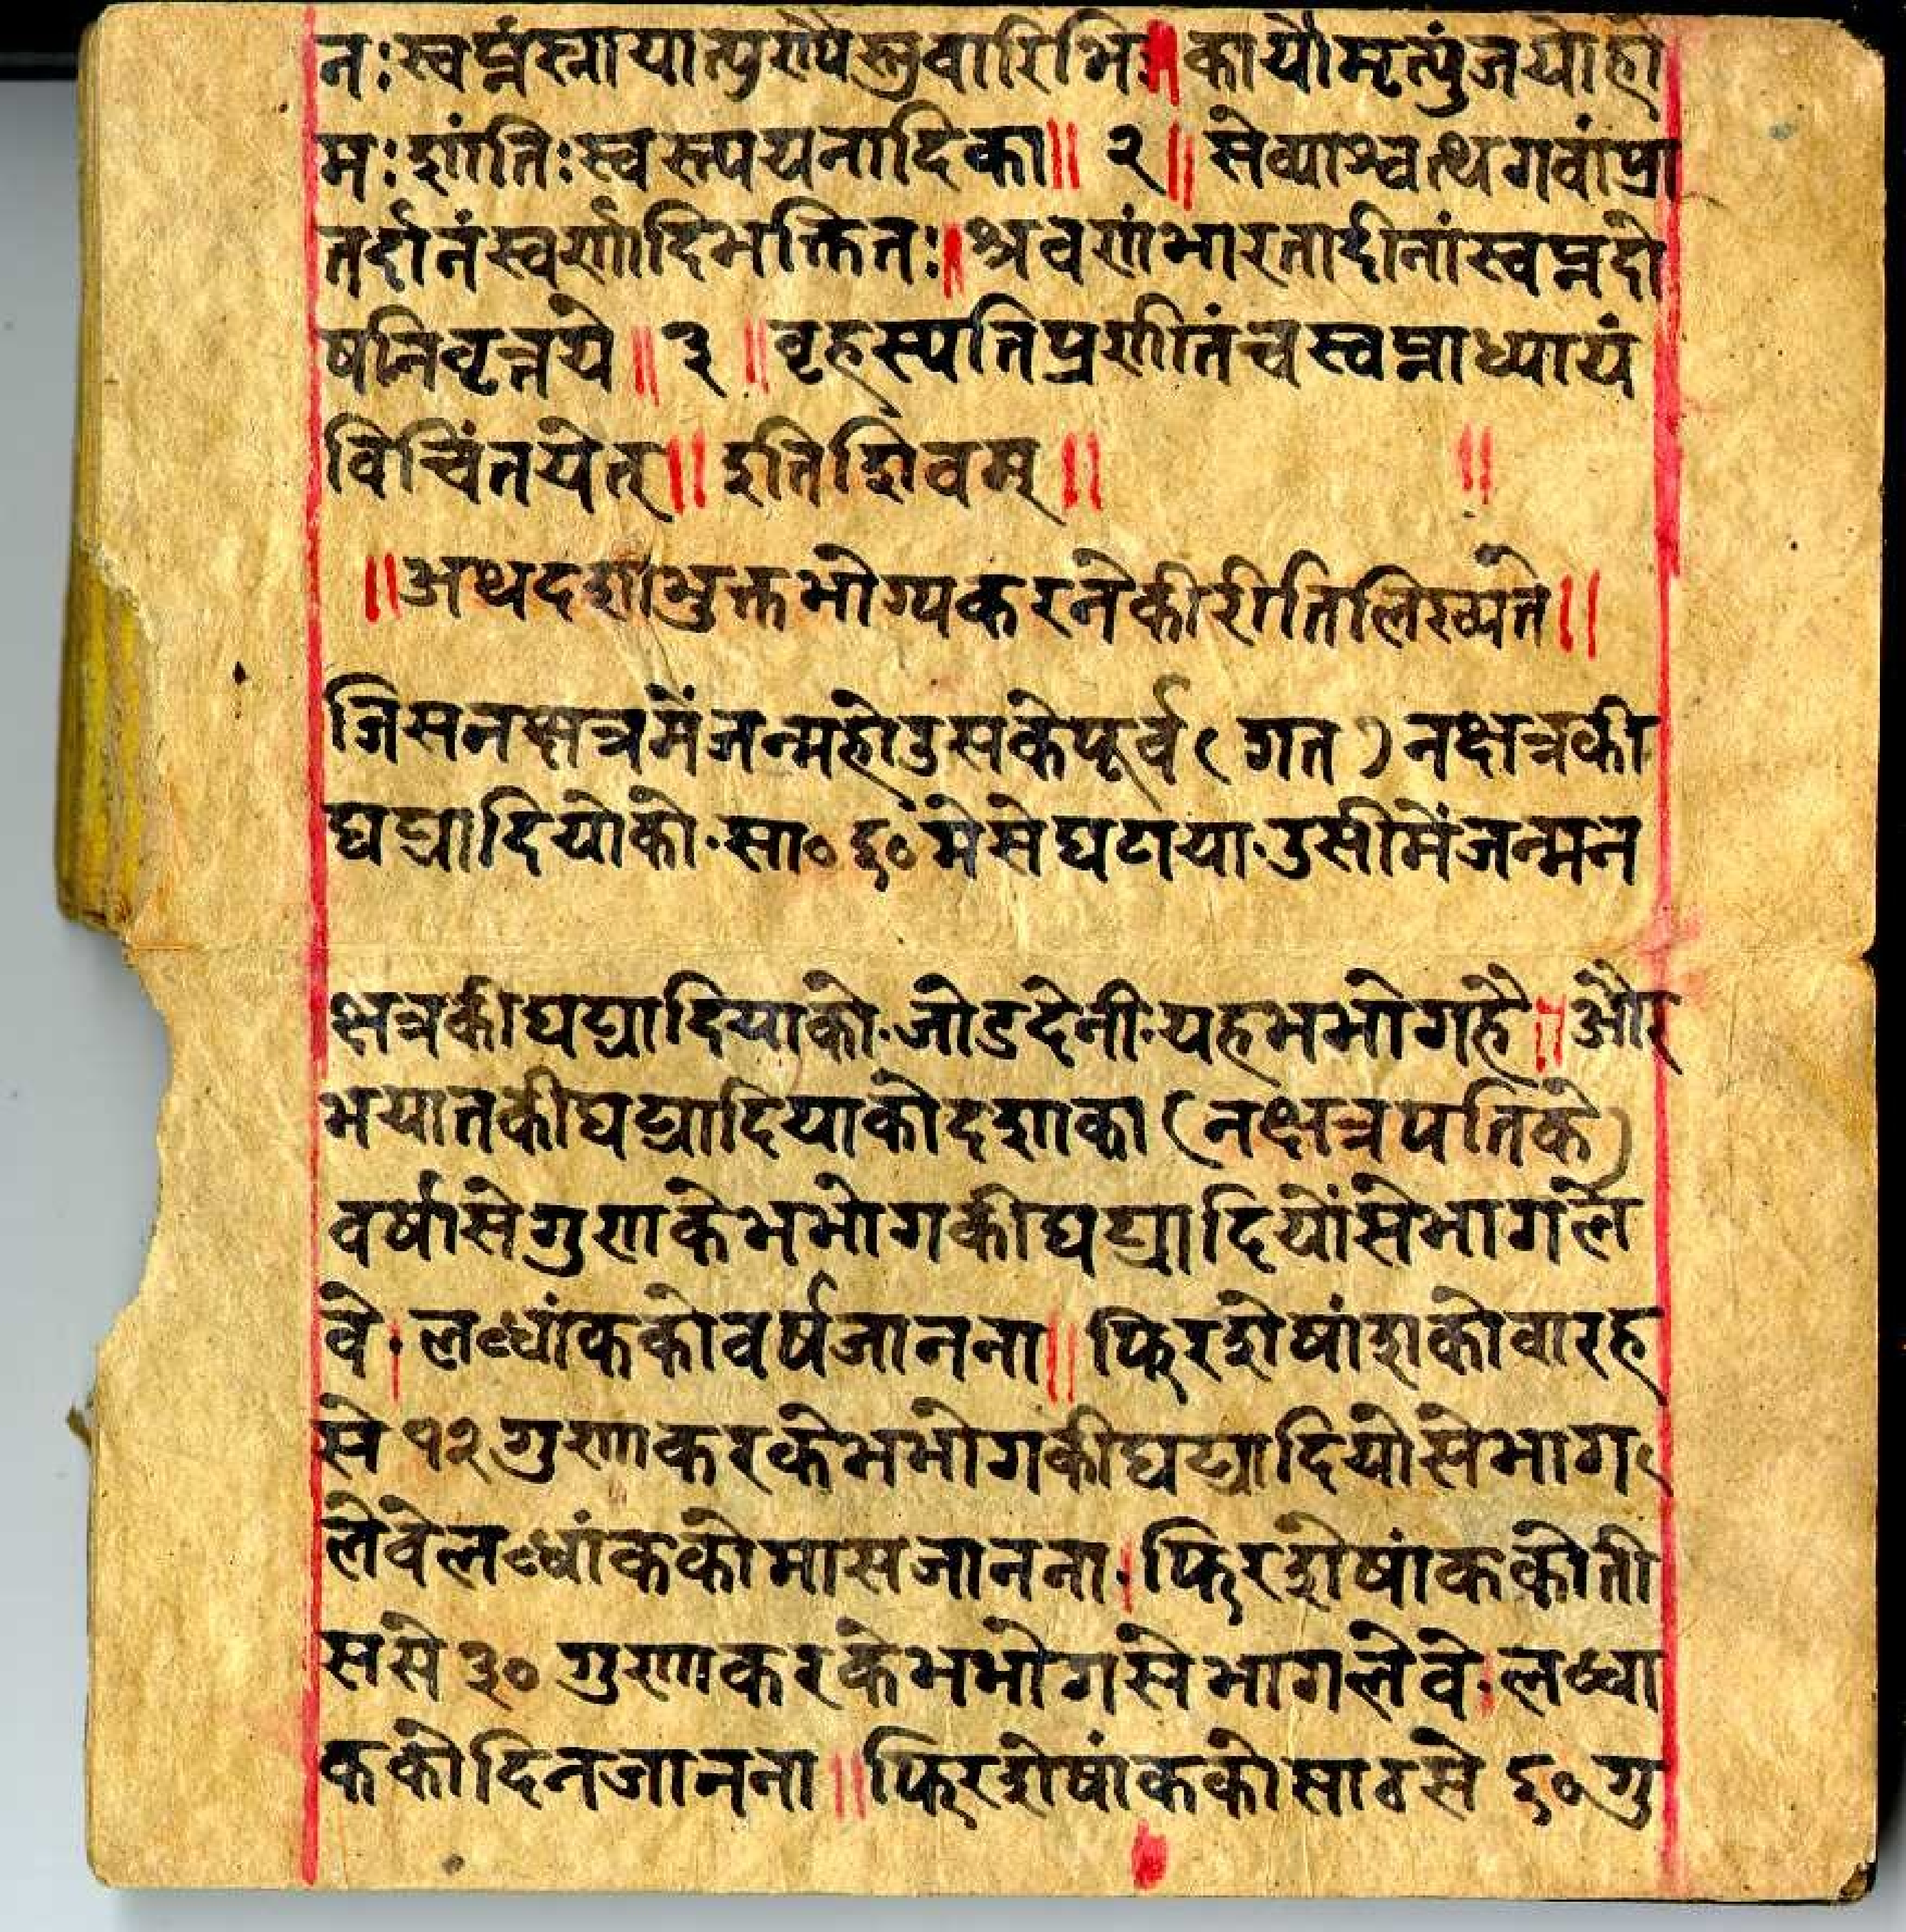 नः स्वप्नं स्नायात्पुण्यैस्तु वारिभिः। कार्यो मृत्युंजयो हो
मः शांतिः स्वस्त्ययनादिका॥ २॥ सेव्याश्वत्थगवां प्रा
तर्दानं स्वर्णादिभक्तितः। श्रवणं भारतादीनां स्वप्नदो
षनिवृत्तये॥ ३॥ वृहस्पतिप्रणीतं च स्वप्नाध्यायं
विचिंतयेत्॥ इति शिवम्॥ ॥
॥ अथ दशाभुक्तभोग्य करने की रीति लिख्यते॥
जिस नक्षत्र में जन्म हो उसके पूर्व (गत) नक्षत्र की
घट्यादियो को. सा० ६० मे से घटाया. उसी में जन्मन
क्षत्र की घट्यादिया को. जोड देनी. यह भभोग है॥ और
भयात की घट्यादिया को दशा का (नक्षत्रपति के)
वर्षो से गुण के भभोग की घट्यादियों से भाग ले
वे। लब्धांक को वर्ष जानना॥ फिर शेषांश को वारह
से १२ गुण करके भभोग की घट्यादियो से भाग
लेवे लब्धांक को मास जानना। फिर शेषांक को ती
स से ३० गुण करके भभोग से भाग लेवे। लब्धा
क को दिन जानना॥ फिर शेषांक को साठ से ६० गु